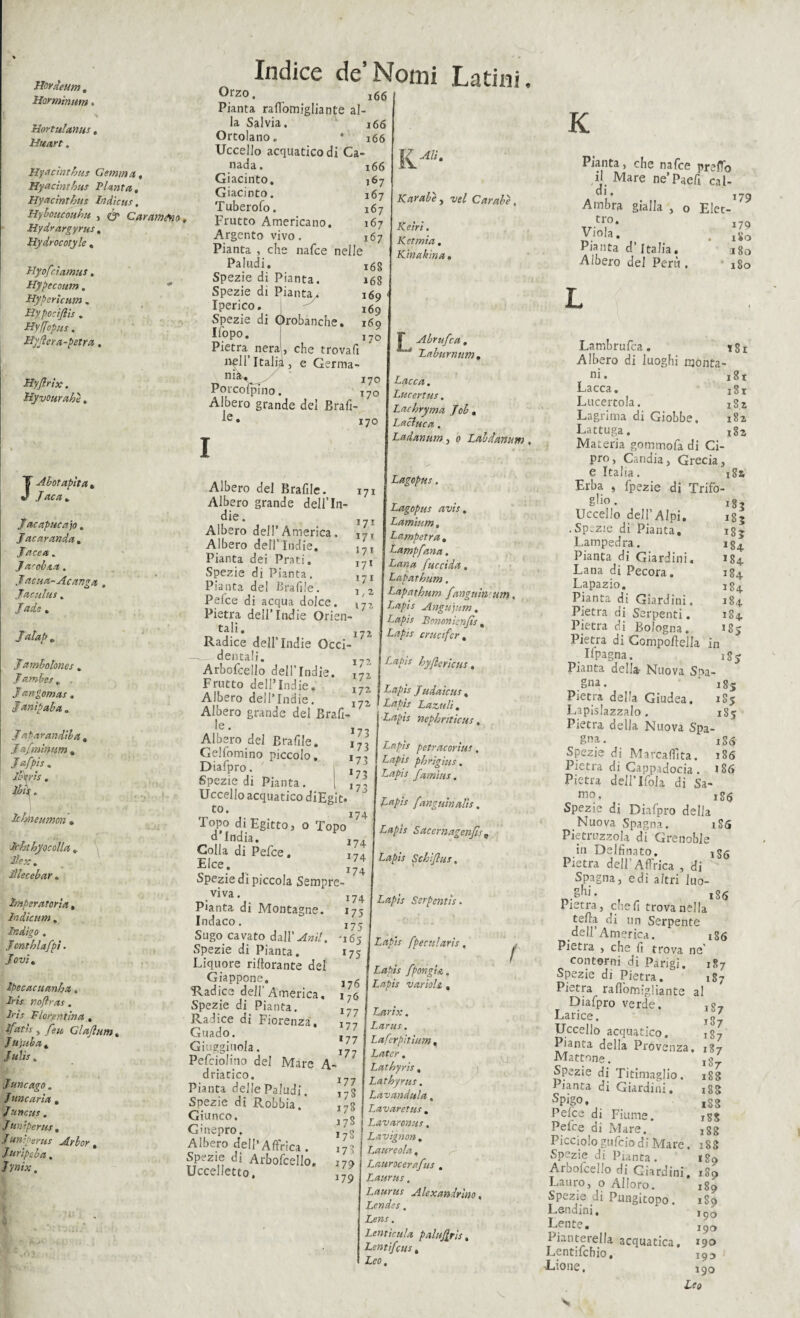 Indice de' Nomi Latini.
Hordeum.
Horminum.
Hortulanus.
Huart.
Hyacinthus Gemma.
Hyacinthus Planta.
Hyacinthus Indicus.
Hyboucouhu, & Carameno.
Hydrargyrus.
Hydrocotyle.
Hyoſciamus.
Hypecoum.
Hypericum.
Hypociſtis.
Hyſſopus.
Hyſtera-petra.
Hyſtrix.
Hyvourahè.
JAbotapita.
Jaca.
Jacapucajo.
Jacaranda.
Jacea.
Jacobæa.
Jacua-Acanga.
Jaculus.
Jade.
Jalap.
Jambolones.
Jambes.
Jangomas.
Janipaba.
Japarandiba.
Jaſminum.
Jaſpis.
Iberis.
Ibis.
Ichneumon.
Ichthyocolla.
Ilex.
Illecebar.
Imperatoria.
Indicum.
Indigo.
Jonthlaſpi.
Jovi.
Ipecacuanha.
Iris noſtras.
Iris Florentina.
Iſatis, ſeu Glaſtum.
Jujuba.
Julis.
Juncago.
Juncaria.
Juncus.
Juniperus.
Juniperus Arbor.
Juripeba.
Jynix.
Orzo. 166
Pianta raſſomigliante al-
la Salvia. 166
Ortolano. 166
Uccello acquatico di Ca-
nada. 166
Giacinto. 167
Giacinto. 167
Tuberoſo. 167
Frutto Americano. 167
Argento vivo. 167
Pianta, che naſce nelle
Paludi. 168
Spezie di Pianta. 168
Spezie di Pianta. 169
Iperico. 169
Spezie di Orobanche. 169
Iſopo. 170
Pietra nera, che trovaſi
nell' Italia, e Germa-
nia. 170
Porcoſpino. 170
Albero grande del Braſi-
le. 170
I
Albero del Braſile. 171
Albero grande dell'In-
die. 171
Albero dell' America. 171
Albero dell'Indie. 171
Pianta dei Prati. 171
Spezie di Pianta. 171
Pianta del Braſile. 172
Peſce di acqua dolce. 172
Pietra dell'Indie Orien-
tali. 172
Radice dell'Indie Occi-
dentali. 172
Arboſcello dell'Indie. 172
Frutto dell'Indie. 172
Albero dell'Indie. 172
Albero grande del Braſi-
le. 173
Albero del Braſile. 173
Gelſomino piccolo. 173
Diaſpro. 173
Spezie di Pianta. 173
Uccello acquatico di Egit-
to. 174
Topo di Egitto, o Topo
d'India. 174
Colla di Peſce. 174
Elce. 174
Spezie di piccola Sempre-
viva. 174
Pianta di Montagne. 175
Indaco. 175
Sugo cavato dall' Anil. 165
Spezie di Pianta. 175
Liquore riſtorante del
Giappone. 176
Radice dell' America. 176
Spezie di Pianta. 177
Radice di Fiorenza. 177
Guado. 177
Giuggiuola. 177
Peſciolino del Mare A-
driatico. 177
Pianta delle Paludi. 178
Spezie di Robbia. 178
Giunco. 178
Ginepro. 178
Albero dell' Affrica. 178
Spezie di Arboſcello. 179
Uccelletto. 179
KAli.
Karabè, vel Carabè.
Keiri.
Ketmia.
Kinakina.
LAbruſca.
Laburnum.
Lacca.
Lucertus.
Lachryma Job.
Lactuca.
Ladanum, o Labdanum.
Lagopus.
Lagopus avis.
Lamium.
Lampetra.
Lampſana.
Lana ſuccida.
Lapathum.
Lapathum ſanguineum.
Lapis Anguium.
Lapis Bononienſis.
Lapis crucifer.
Lapis hyſtericus.
Lapis Judaicus.
Lapis Lazuli.
Lapis nephriticus.
Lapis petracorius.
Lapis phrigius.
Lapis ſamius.
Lapis ſanguinalis.
Lapis Sacernagenſis.
Lapis Schiſtus.
Lapis Serpentis.
Lapis ſpecularis.
Lapis ſpongiæ.
Lapis variolæ.
Larix.
Larus.
Laſerpitium.
Later.
Lathyris.
Lathyrus.
Lavandula.
Lavaretus.
Lavaronus.
Lavignon.
Laureola.
Laurocerafus.
Laurus.
Laurus Alexandrino.
Lendes.
Lens.
Lenticula paluſtris.
Lentiſcus.
Leo.
K
Pianta, che naſce preſſo
il Mare ne' Paeſi cal-
di. 179
Ambra gialla, o Elet-
tro. 179
Viola. 180
Pianta d'Italia. 180
Albero del Perù. 180
L
Lambruſca. 181
Albero di luoghi monta-
ni. 181
Lacca. 181
Lucertola. 182
Lagrima di Giobbe. 182
Lattuga. 182
Materia gommoſa di Ci-
pro, Candia, Grecia,
e Italia. 182
Erba, ſpezie di Trifo-
glio. 183
Uccello dell'Alpi. 183
Spezie di Pianta. 183
Lampedra. 184
Pianta di Giardini. 184
Lana di Pecora. 184
Lapazio. 184
Pianta di Giardini. 184
Pietra di Serpenti. 184
Pietra di Bologna. 185
Pietra di Compoſtella in
Iſpagna. 185
Pianta della Nuova Spa-
gna. 185
Pietra della Giudea. 185
Lapislazzalo. 185
Pietra della Nuova Spa-
gna. 186
Spezie di Marcaſſita. 186
Pietra di Cappadocia. 186
Pietra dell'Iſola di Sa-
mo. 186
Spezie di Diaſpro della
Nuova Spagna. 186
Pietruzzola di Grenoble
in Delfinato. 186
Pietra dell' Affrica, di
Spagna, ed i altri luo-
ghi. 186
Pietra, che ſi trova nella
teſta di un Serpente
dell'America. 186
Pietra, che ſi trova ne'
contorni di Parigi. 187
Spezie di Pietra. 187
Pietra raſſomigliante al
Diaſpro verde. 187
Larice. 187
Uccello acquatico. 187
Pianta della Provenza. 187
Mattone. 187
Spezie di Titimaglio. 188
Pianta di Giardini. 188
Spigo. 188
Peſce di Fiume. 188
Peſce di Mare. 188
Picciolo guſcio di Mare. 188
Spezie di Pianta. 189
Arboſcello di Giardini. 189
Lauro, o Alloro. 189
Spezie di Pungitopo. 189
Lendini. 190
Lente. 190
Pianterella acquatica. 190
Lentiſchio. 190
Lione. 190
Leo